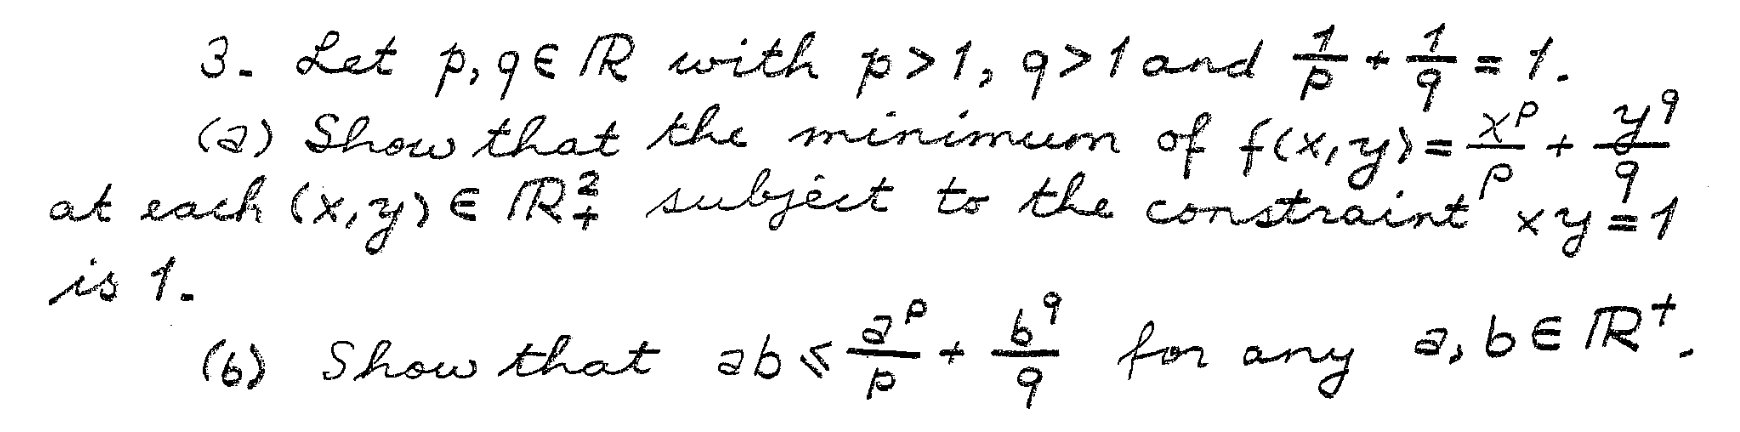 3. Let p, q ∈ ℝ with p > 1, q > 1 and 1/p + 1/q = 1.
(a) Show that the minimum of f(x,y) = x^p/p + y^q/q
at each (x,y) ∈ ℝ²₊ subject to the constraint xy = 1
is 1.
(b) Show that ab ≤ a^p/p + b^q/q for any a, b ∈ ℝ⁺.